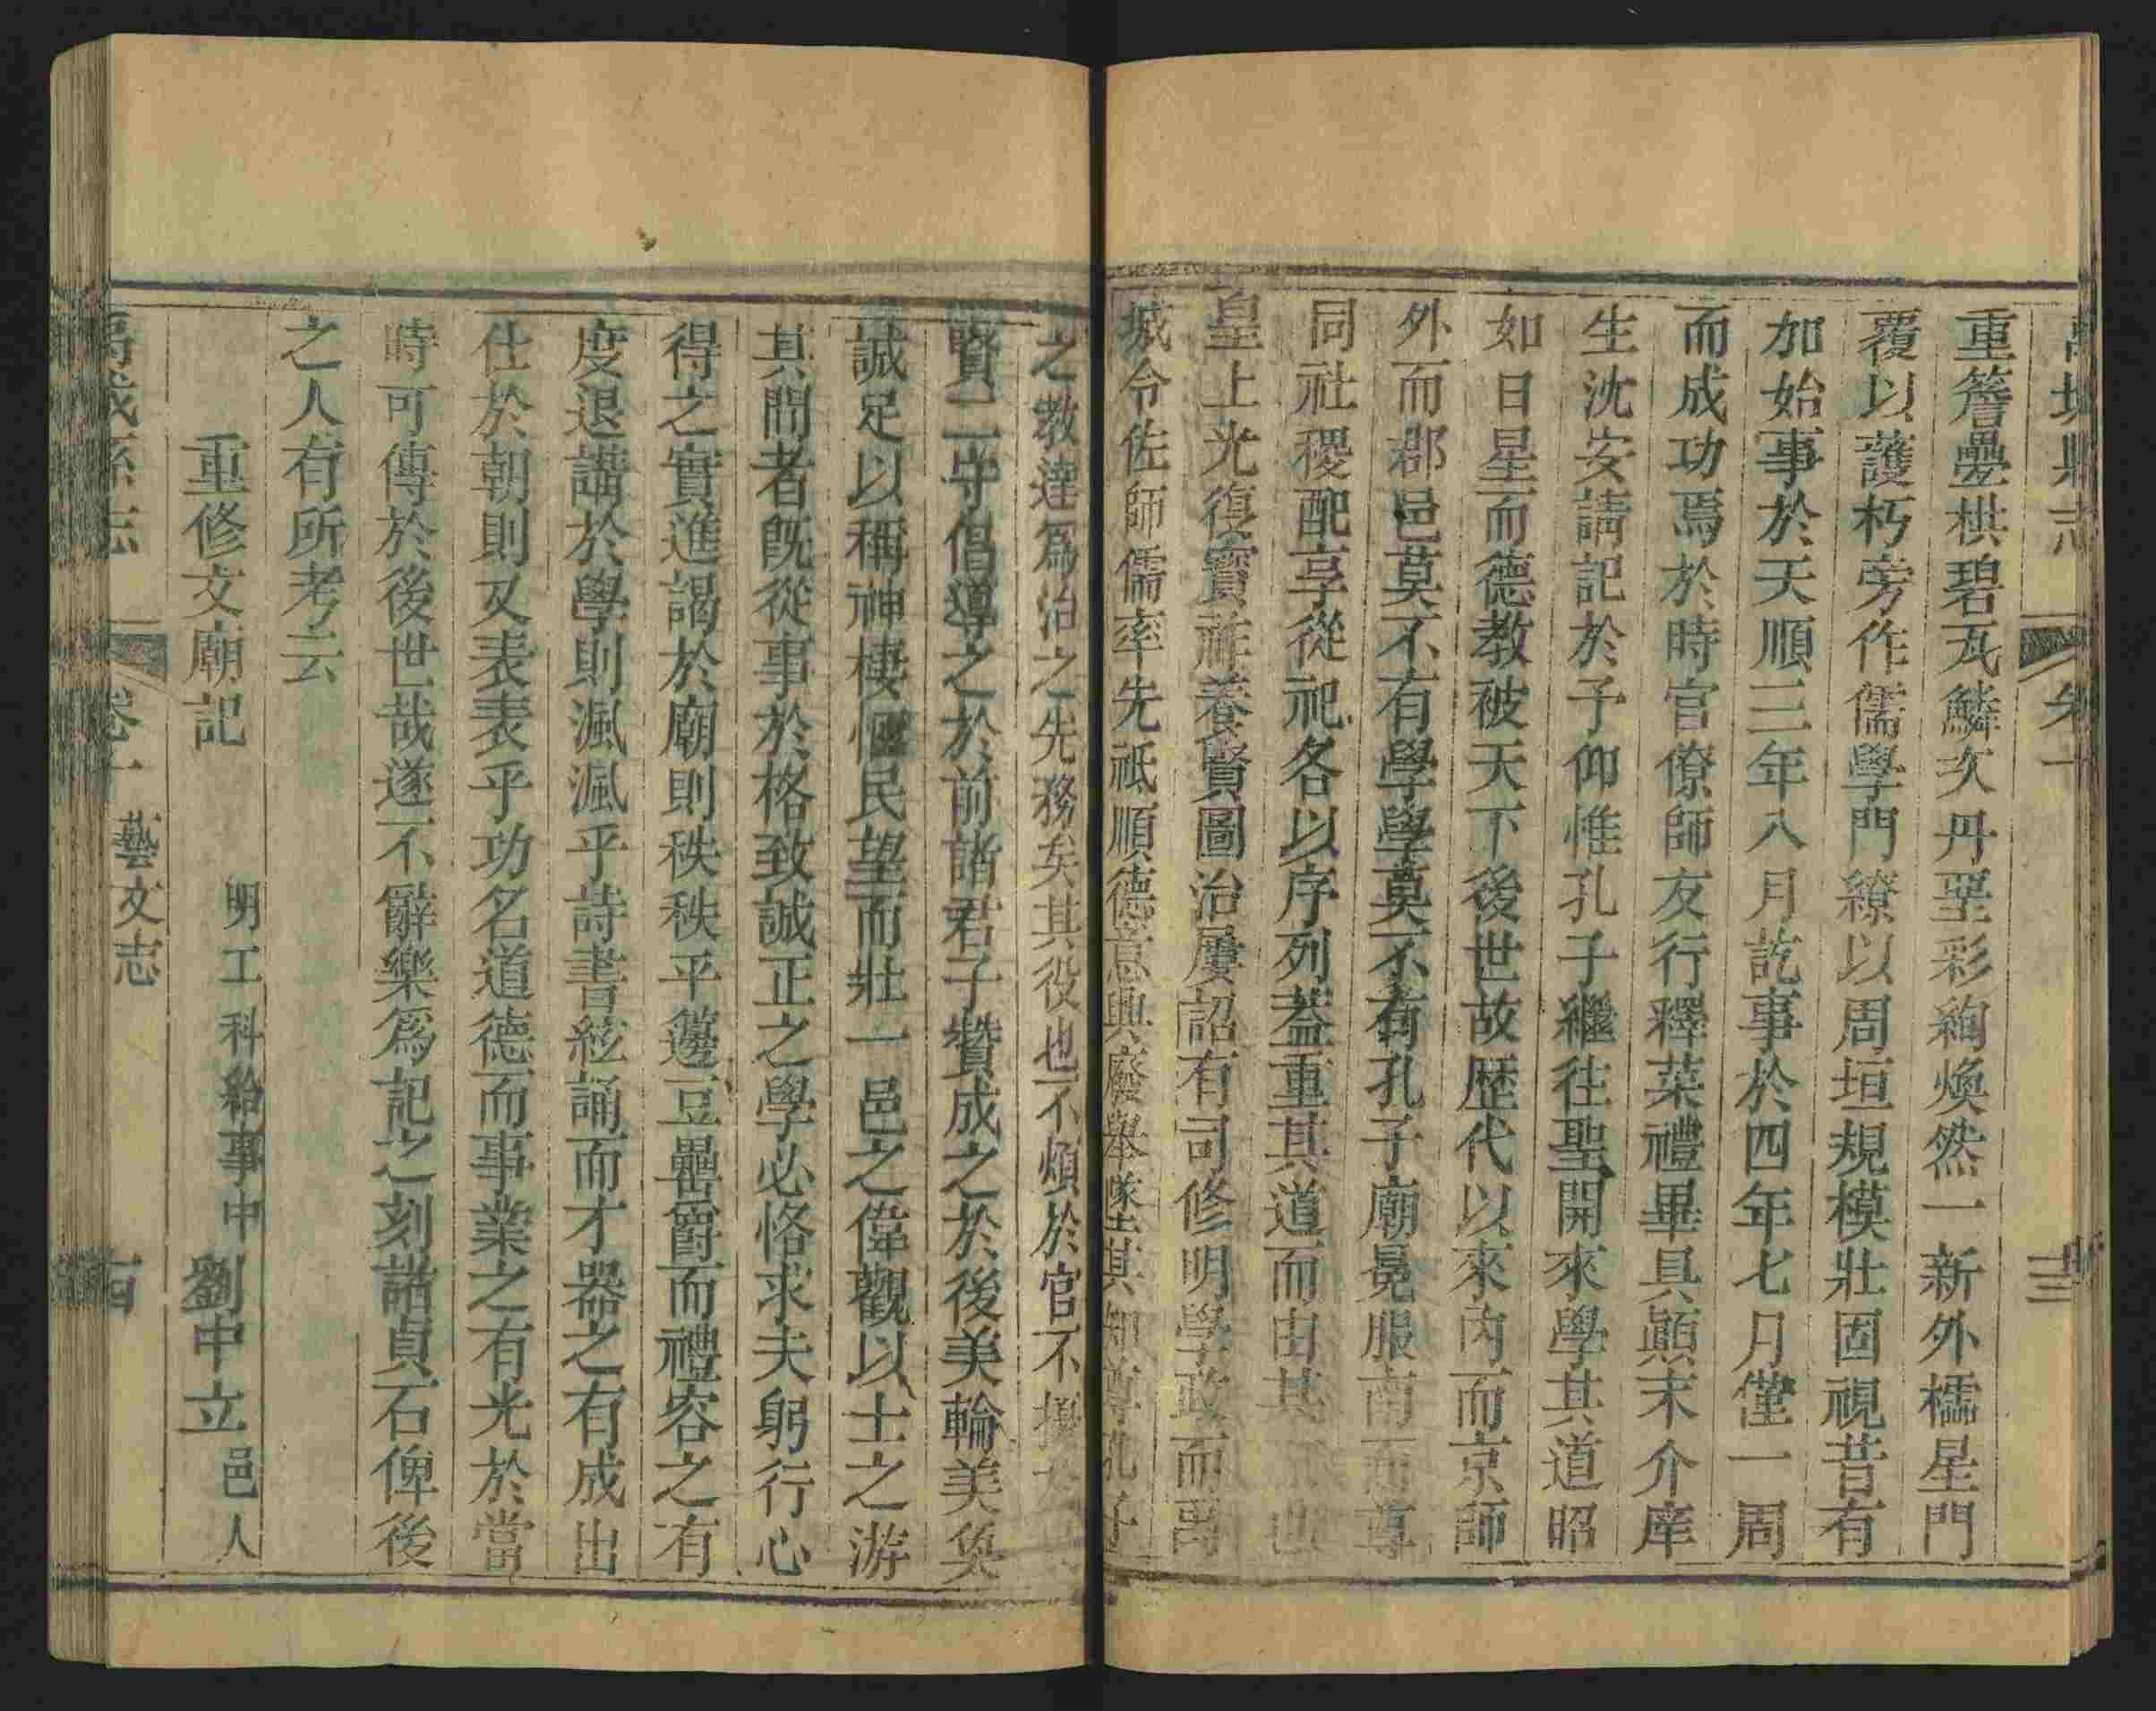 重簷疊栱碧瓦鱗次丹堊彩絢煥然一新外櫺星門
覆以護朽旁作儒學門繚以周垣規模壯固視昔有
加始事於天順三年八月訖事於四年七月僅一周
而成功焉於時官僚師友行釋菜禮畢具顛末介庠
生沈安請記於予仰惟孔子繼往聖開來學其道昭
如日星而德教被天下後世故歷代以來內而京師
外而郡邑莫不有學學莫不有孔子廟冕服南而尊
同社稷配享從祀各以序列葢重其道而由其出
皇上光復寶祚養賢圖治屢詔有司修明學政而禹
城令佐師儒率先祗順德意興廢舉墜其知尊孔子
之教達爲治之先務矣其役也不煩於官不擾
賢二守倡導之於前諸君子贊成之於後美輪美奐
誠足以稱神棲愜民望而壯一邑之偉觀以士之游
其間者旣從事於格致誠正之學必恪求夫躬行心
得之實進謁於廟則秩秩乎籩豆罍爵而禮容之有
度退講於學則渢渢乎詩書絃誦而才器之有成出
仕於朝則又表表乎功名道德而事業之有光於當
時可傳於後世哉遂不辭樂爲記之刻諸貞石俾後
之人有所考云
重修文廟記　明工科給事中　劉中立　邑人
禹城縣志　卷十　藝文志